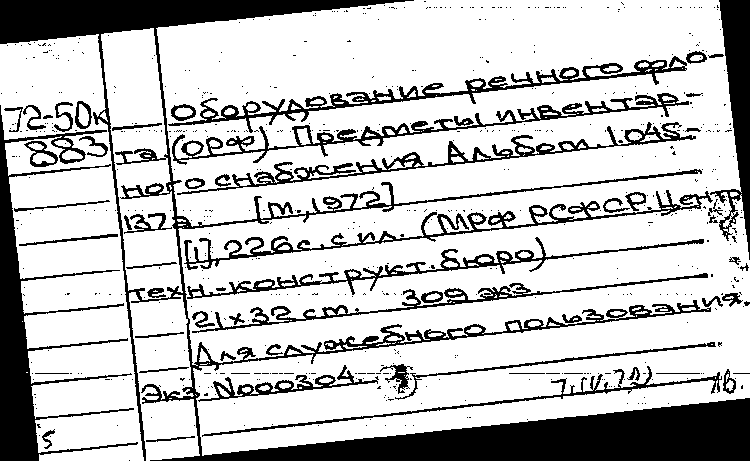 72-50к Оборудование речного фло-
883 та (ОРФ). Предметы инвентар-
ного снабжения. Альбом. 1.045-
137а. [М., 1972]
[1], 226 с. с ил. (МРФ РСФСР. Центр.
техн.-конструкт. бюро)
21×32 cm. 309 экз.
Для служебного пользования.
Экз. N000304.
5